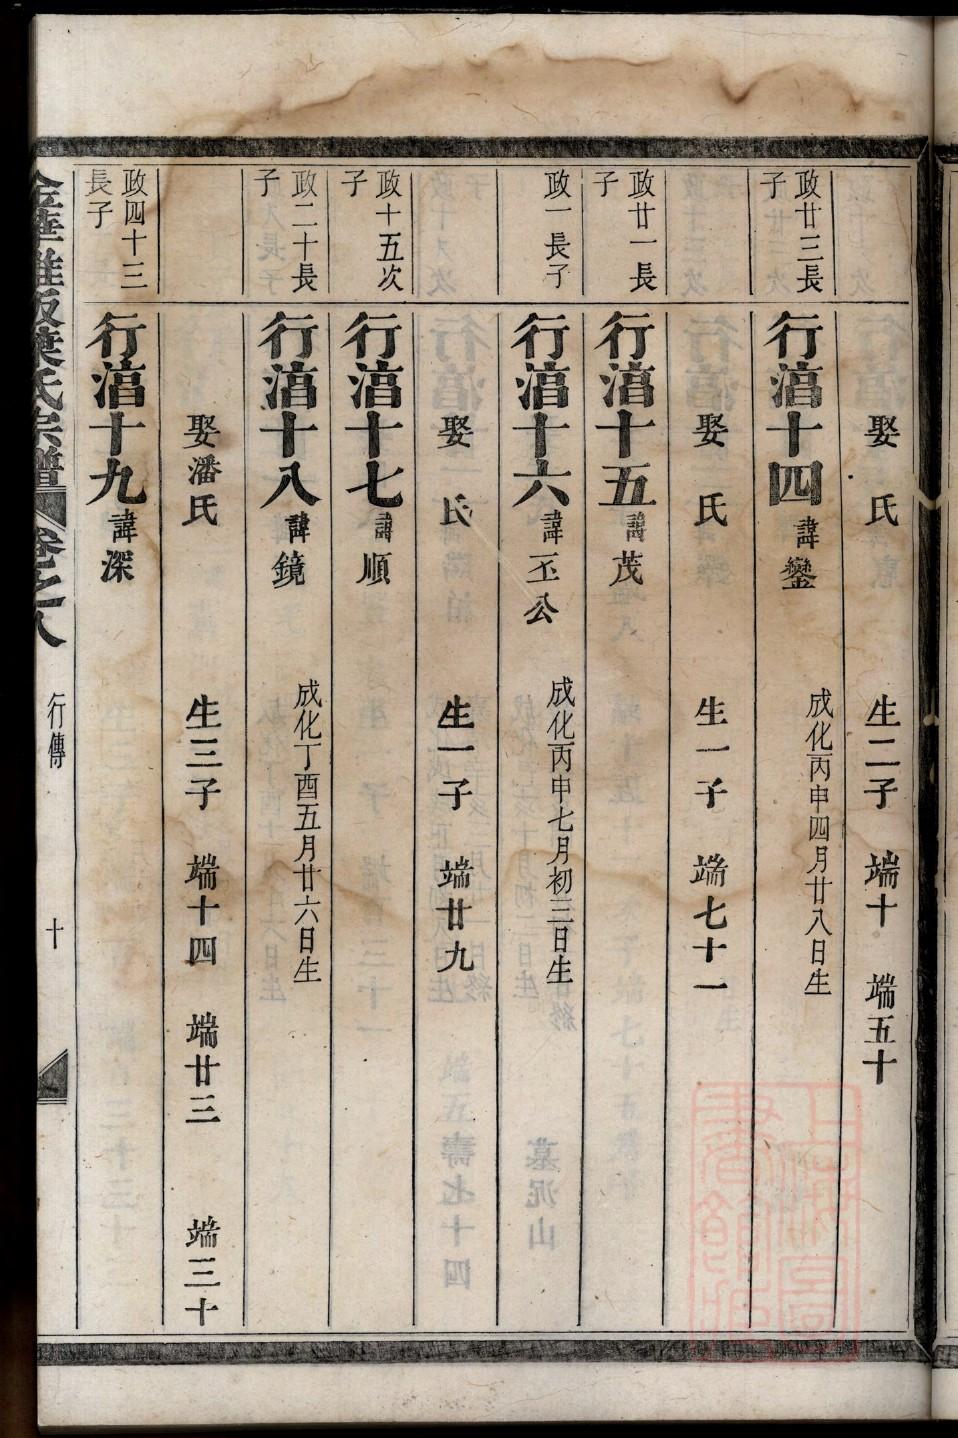 娶　氏　生二子　端十　端五十
政廿三長子
行湻十四　諱鑾　成化丙申四月廿八日生
娶　氏　生一子　端七十一
政廿一長子
行湻十五　諱茂
政一長子
行湻十六　諱丕公　成化丙申七月初三日生
娶　氏　生一子　端廿九
政十五次子
行湻十七　諱順
政二十長子
行湻十八　諱鏡　成化丁酉五月廿六日生
娶潘氏　生三子　端十四　端廿三　端三十
政四十三長子
行湻十九　諱深
葉氏宗譜　卷之八　行傳　十